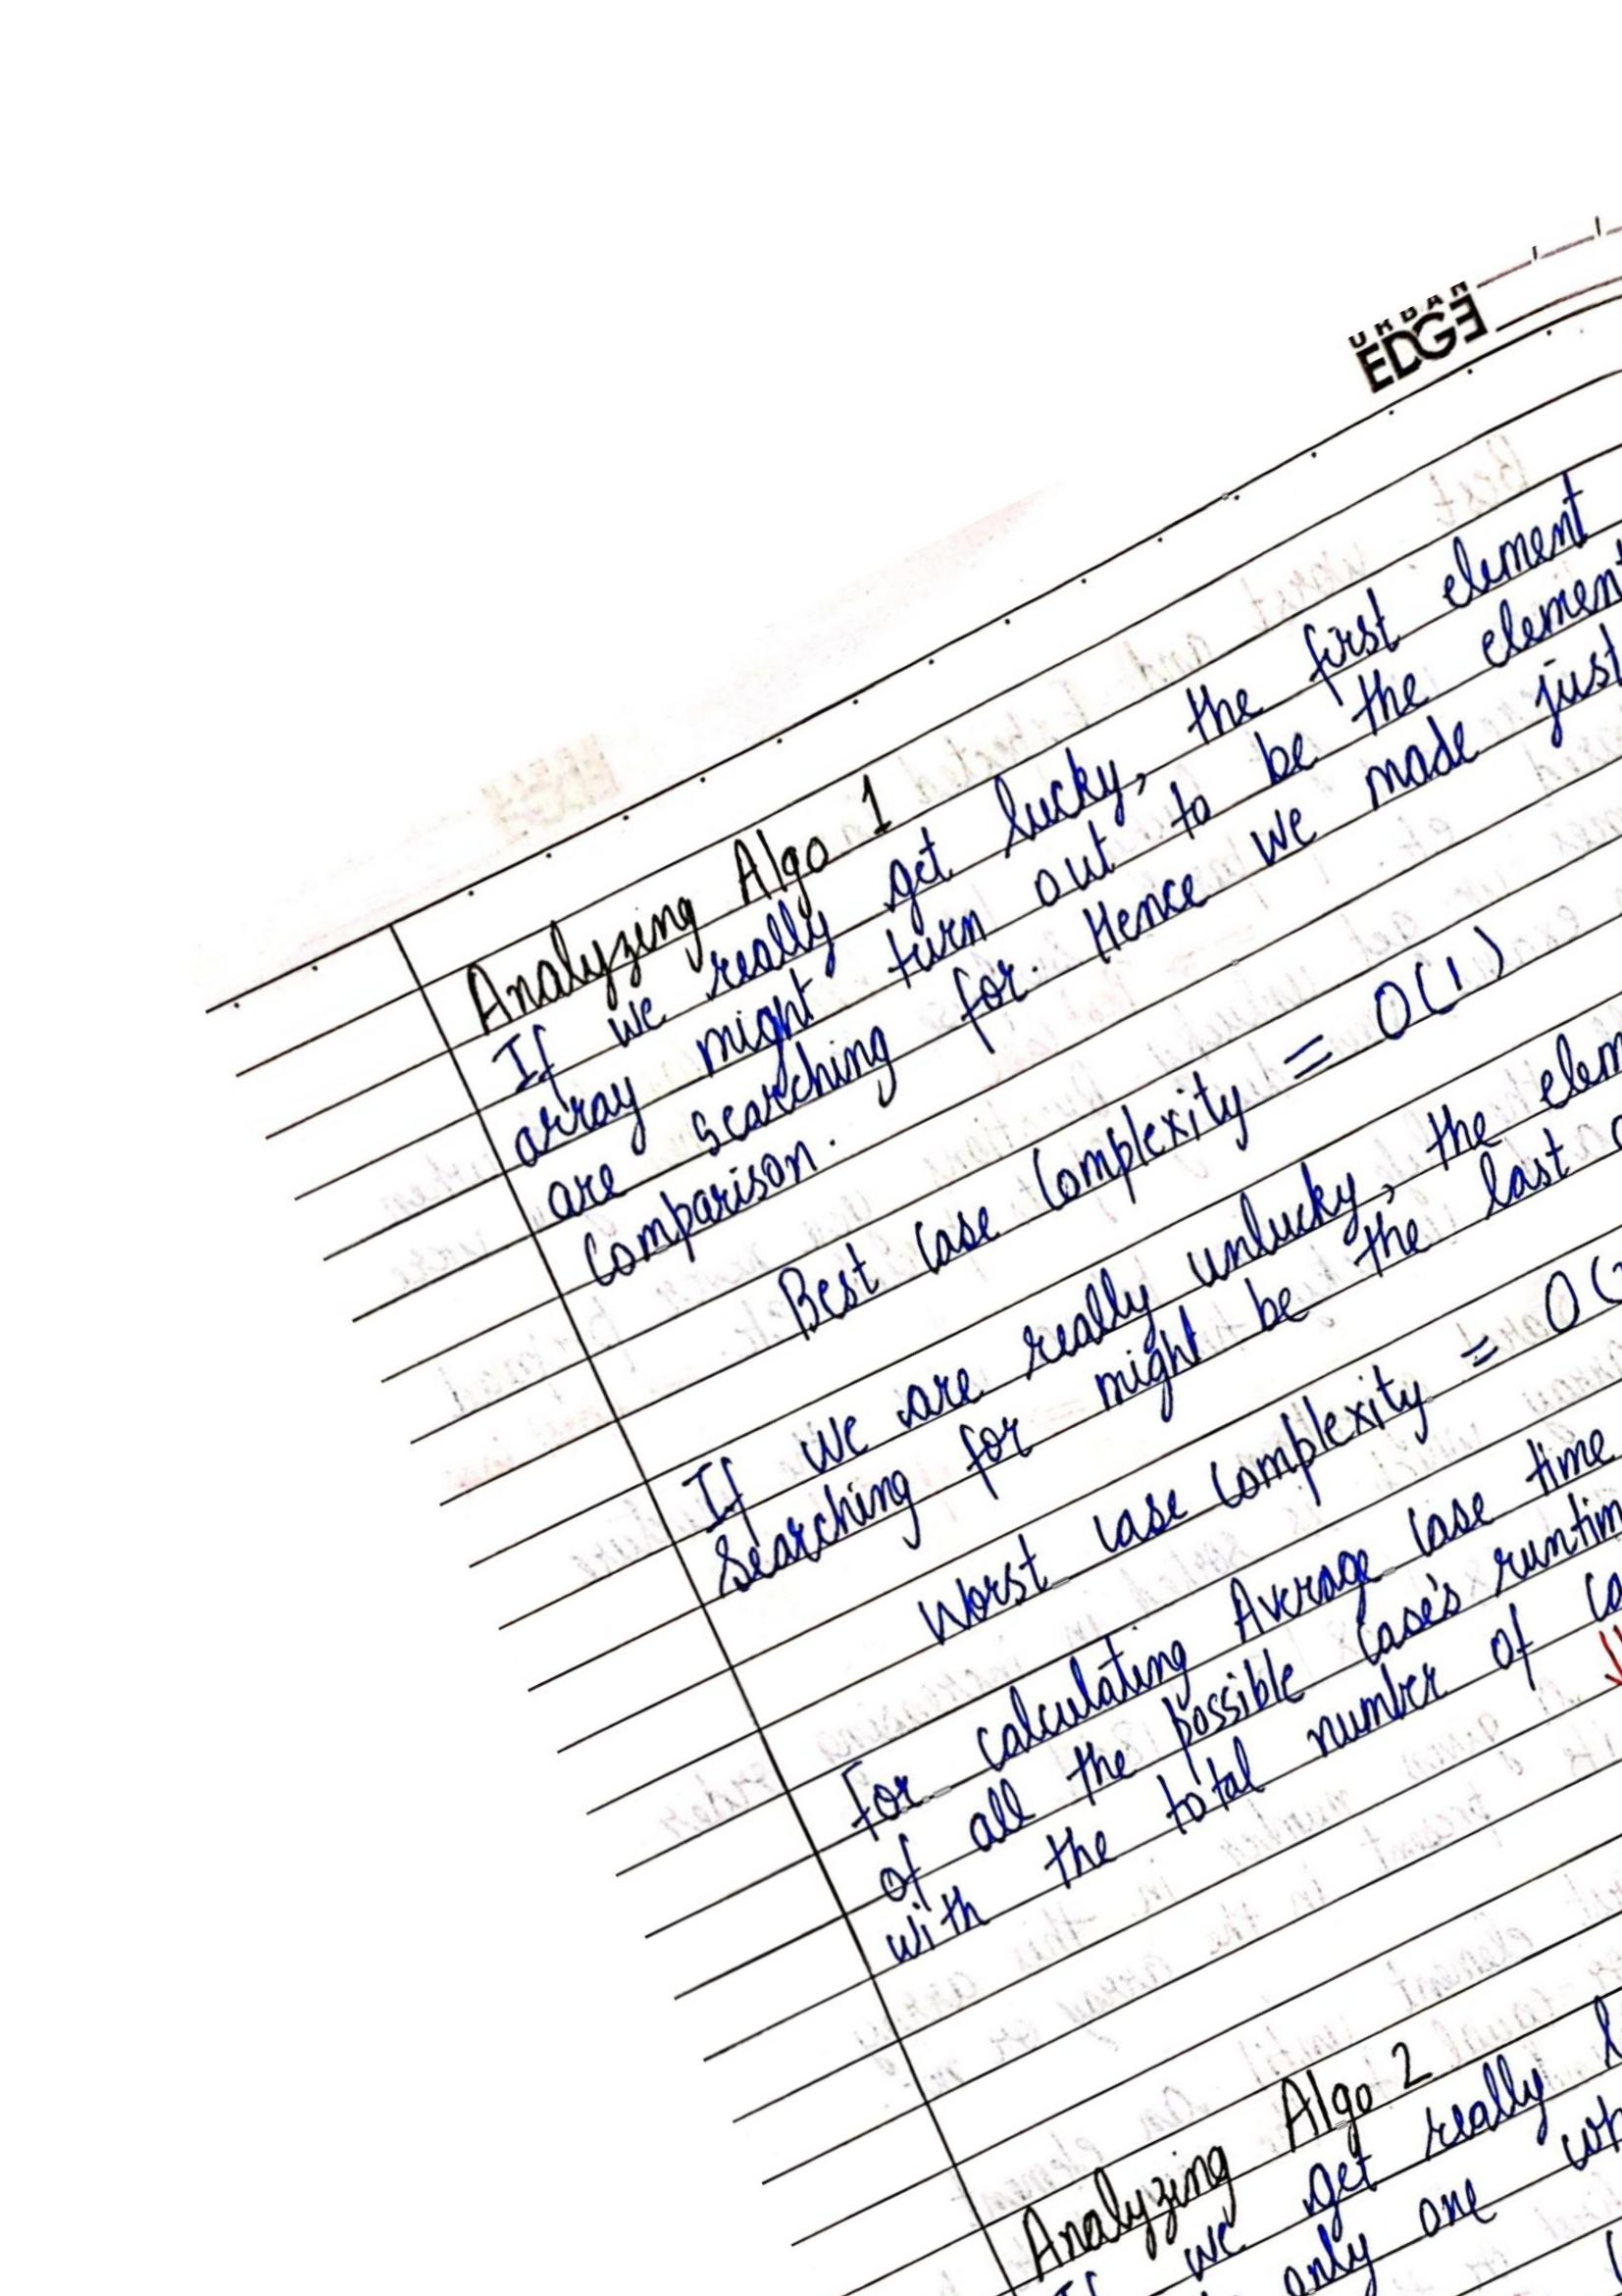 URBAN
EDGE
Analyzing Algo 1
If we really get lucky, the first element
array might turn out to be the element
are searching for. Hence we made just
comparison.
Best case complexity = O(1)
If we are really unlucky, the elem
Searching for might be the last
Worst case complexity = O(
For calculating Average case time
of all the possible case's runtim
with the total number of ca
Analyzing Algo 2
If we get really
only one wh